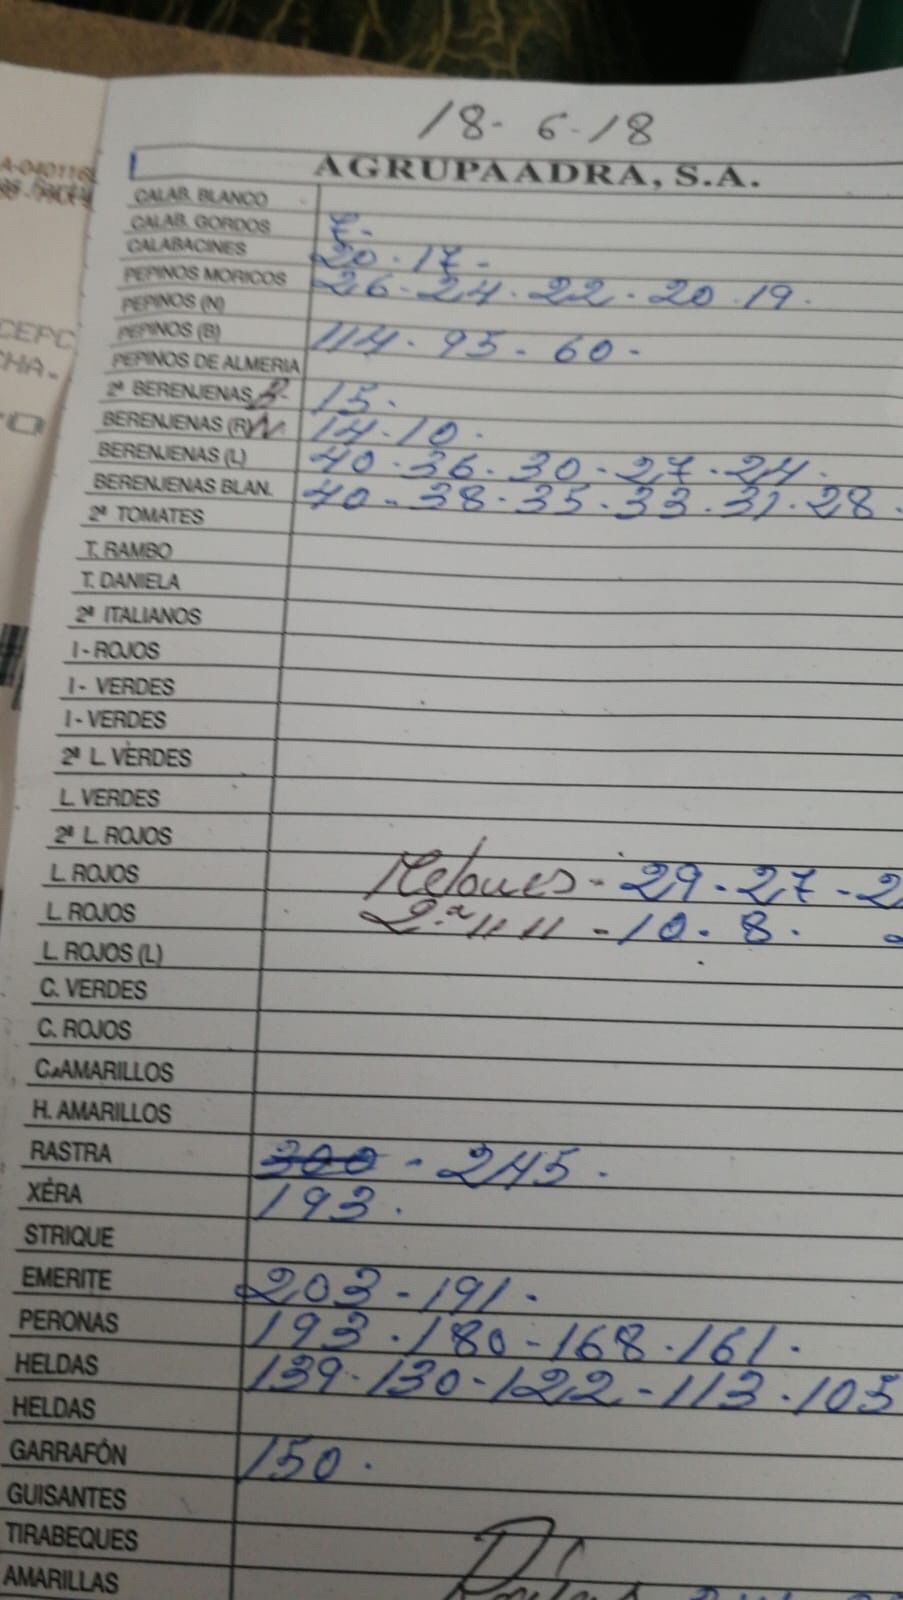 18-6-18
AGRUPAADRA, S.A.
A-040116
CALAB. BLANCO
CALAB. GORDOS 7-
CALABACINES 20.17-
PEPINOS MORICOS 26-24.22-20.19.
PEPINOS (N)
PEPINOS (B) 114.95-60-
PEPINOS DE ALMERIA
2ª BERENJENAS B- 15.
BERENJENAS (R) 14.10.
BERENJENAS (L) 40.36.30-27.24.
BERENJENAS BLAN. 40-38.35.33.31.28.
2ª TOMATES
T. RAMBO
T. DANIELA
2ª ITALIANOS
I - ROJOS
I - VERDES
I - VERDES
2ª L. VERDES
L. VERDES
2ª L. ROJOS
L. ROJOS Melones - 29.27-2
L. ROJOS 2.ª " " -10.8.
L. ROJOS (L)
C. VERDES
C. ROJOS
C. AMARILLOS
H. AMARILLOS
RASTRA 300 - 245.
XÉRA 193.
STRIQUE
EMERITE 203-191.
PERONAS 193.180-168.161.
HELDAS 139.130-122-113.105
HELDAS
GARRAFÓN 150.
GUISANTES
TIRABEQUES
AMARILLAS
CEPC
CHA.